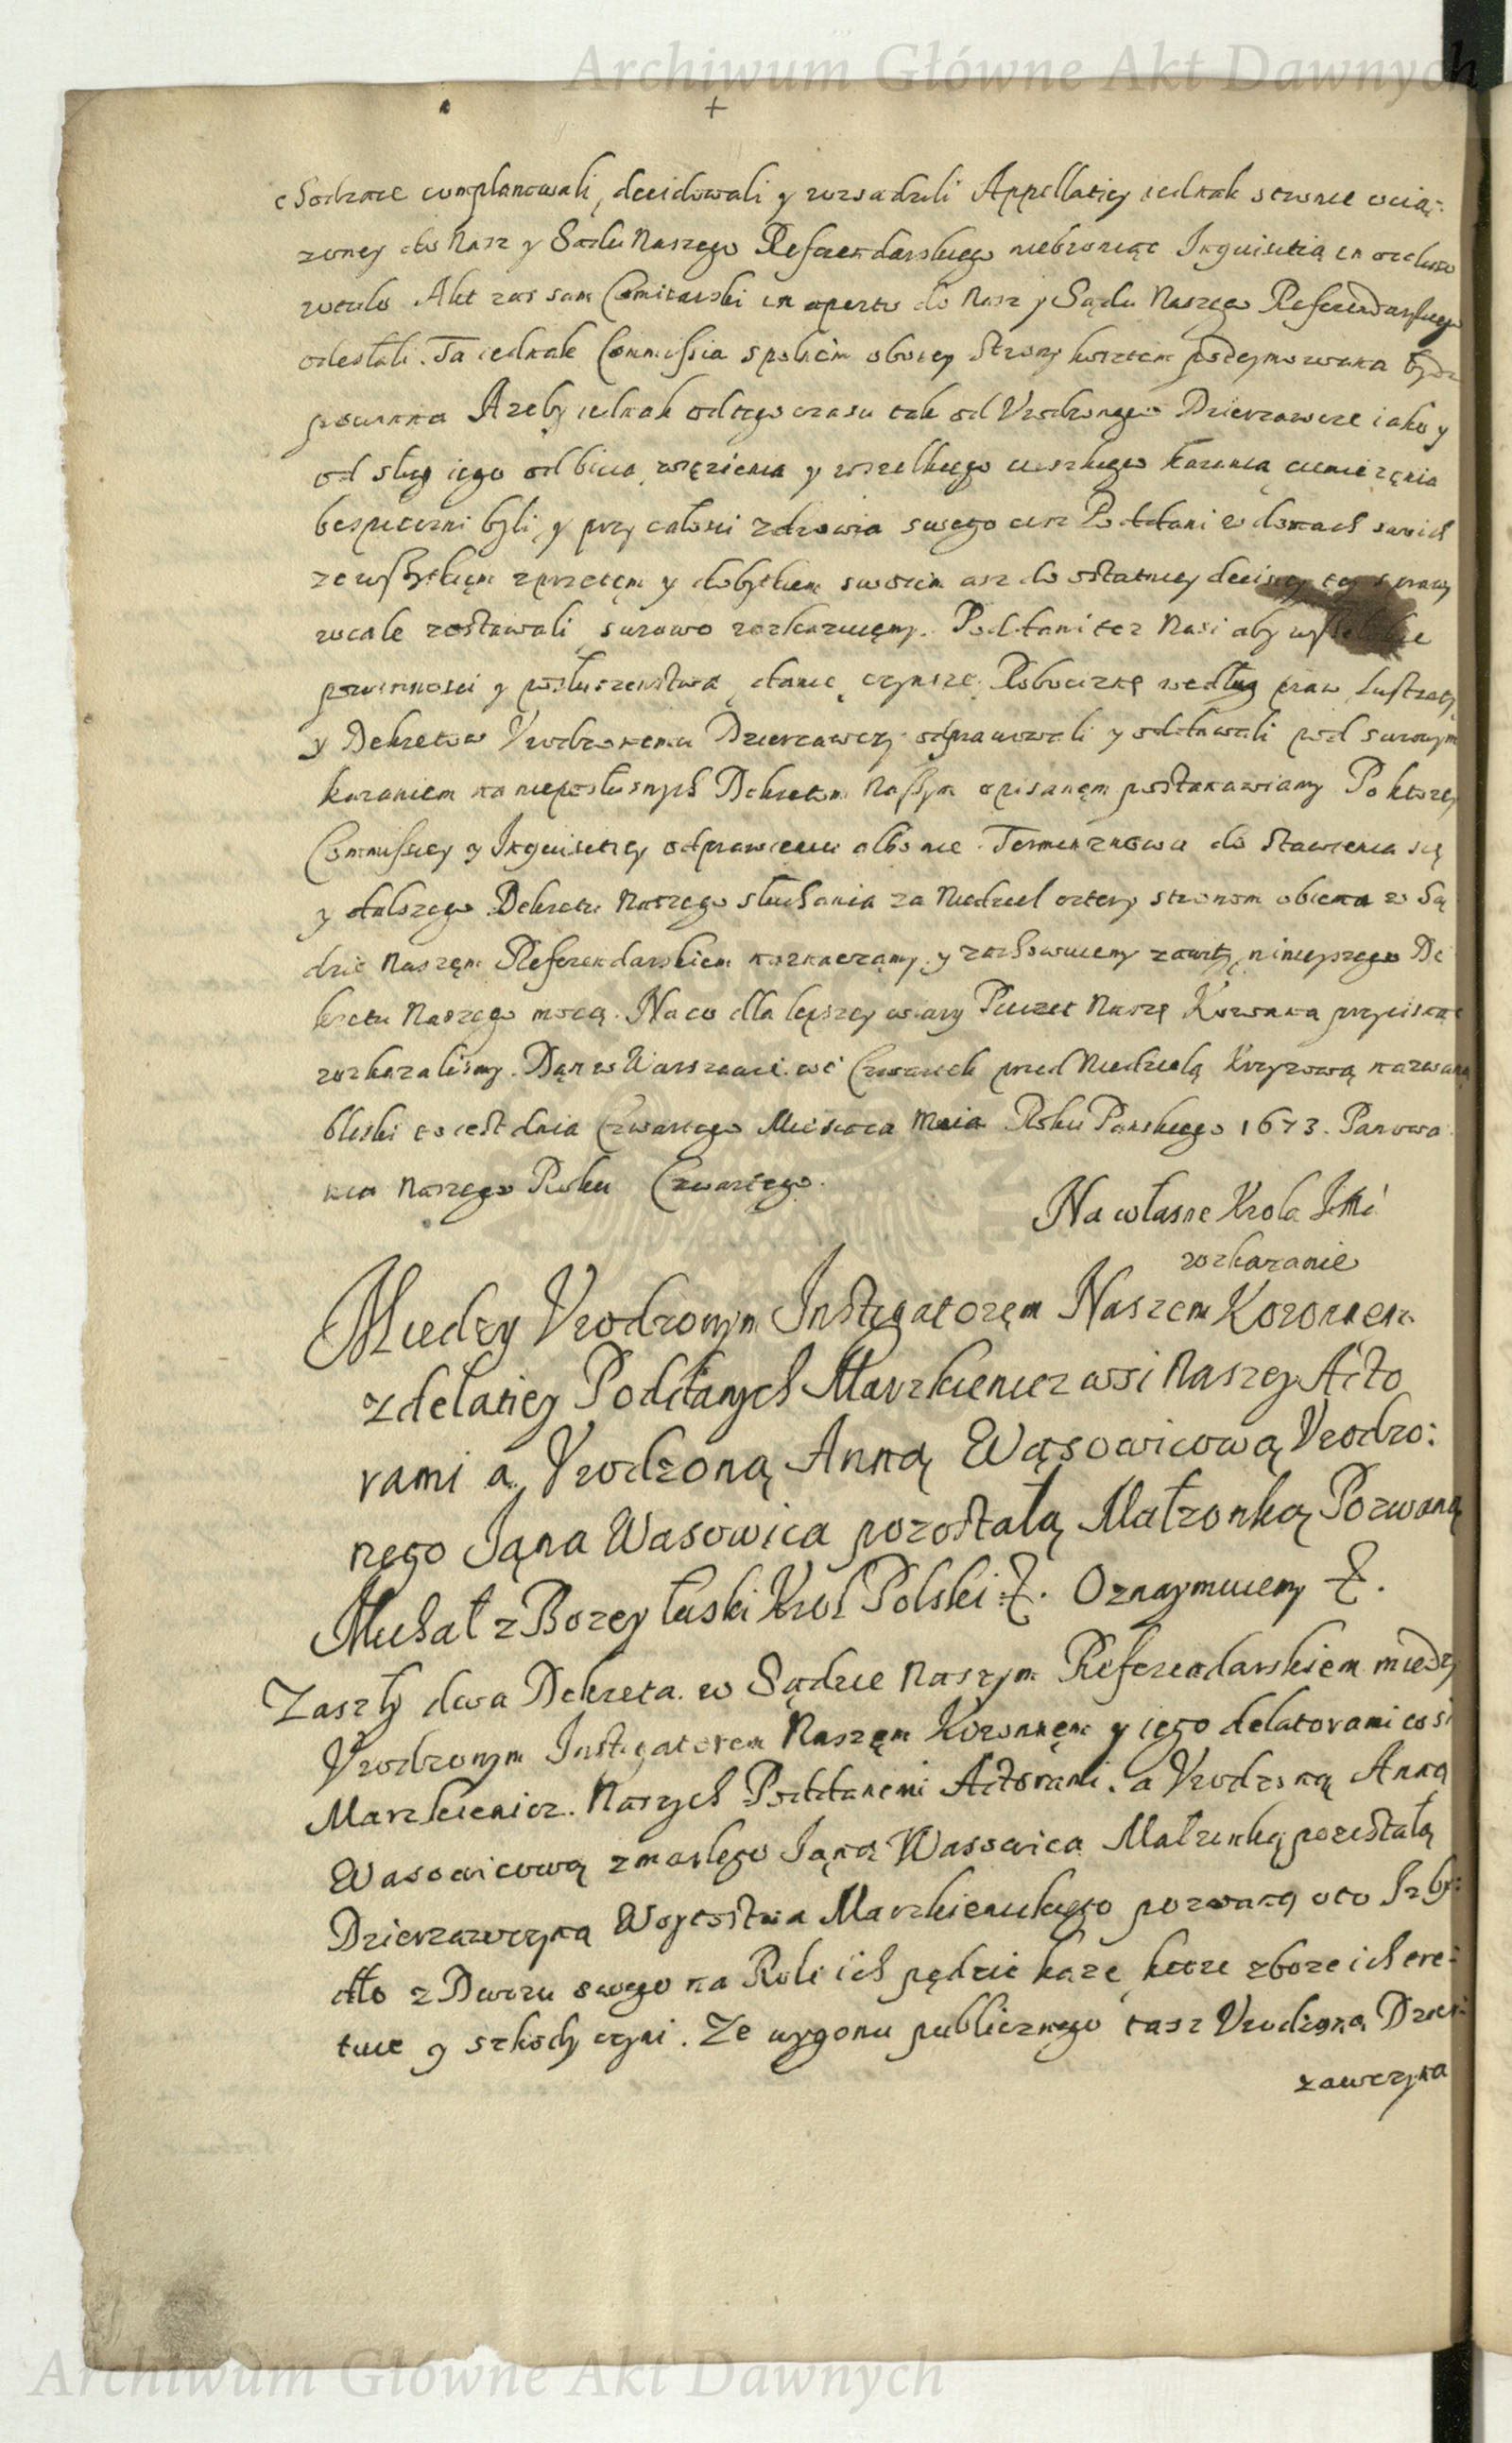 Archiwum Główne Akt Dawnych
+
complanowali, decidowali y rozsądzili Appellatiey iednak stronie uciąż:
zoney do Nasz y Sądu Naszego Referendarskiego niebroniąc Inquisitią in
rotulo Akt zas sam Comisarski in aperto do Nasz y Sądu Naszego Referendarskiego
odesłali. Ta iednak Commissia społnem oboiey strony kosztem podeymowana bydz
powinna Azeby iednak odtego czasu tak od Vrodzonego Dzierzawce iako y
od sług iego od bicia, więzienia y wszelkiego cięszkiego karania, ciemięzęnia
bespieczni byli, y przy całosci zdrowia swego ciz Poddani w domach swoich
ze wszytkięm zprzętęm y dobytkiem swoim asz do ostatniey decisiey tey sprawy
wcale zostawali, surowo rozkazuięmy. Poddani tez Nasi aby wszelkie
powinnosci y posłuszenstwa, danie, czynsze, Robociznę według praw, Lustraty,
y Dekretow Vrodzonemu Dzierzawcy odprawowali y oddawali pod surowym
karaniem na nieposłusznych Dekretem Naszym opisanęm postanawiamy Po ktorey
Commissiey y Inquisitiey odprawieniu albo nie. Termin znowu do stawienia się
y dalszego Dekretu Naszego słuchania za Niedziel cztery stronom obiema w Są
dzie Naszęm Referendarskiem naznaczamy, y zachowuiemy zawitý, ninieyszego De
kretu Naszego mocą. Naco dla lepszey wiary Pieczęc Naszę Koronna przycisnąc
rozkazalismy. Dan w Warszawie. we Czwartek przed Niedzielą Krzyzową nazwaną
bliski to iest dnia Czwartego Miesiąca Maia Roku Panskiego 1673. Panowa
nia Naszego Roku Czwartego.
Na własne Krola JMci
rozkazanie
Miedzy Vrodzonym Instigatoręm Naszem Koronnęm
z delatiey Poddanych Marzkienicz wsi Naszey Acto
rami a, Vrodzoną, Anną Wąsowicową Vrodzo:
nego Jąna Wasowica pozostałą, Małzonką, Pozwaną
Michał z Bozey łaski Krol Polski &. Oznaymuiemy &.
Zaszły dwa Dekreta. w Sądzie Naszym Referendarskiem miedzy
Vrodzonym Instigatorem Naszęm Koronnęm y iego delatorami co si
Marzkienicz. Naszych Poddanemi Actorami. a Vrodzoną Anną
Wasowicową zmarłego Jąna Wasowica Małzonką pozostałą
Dzierzawczyną Woytostwa Marzkienickiego pozwaną oto Iz by:
dło z Dworu swego na Role ich pędzic kaze, ktore zboze ich
tuie y szkody czyni. Ze wygonu publicznego tasz Vrodzona Dzier:
zawczyna
Archiwum Główne Akt Dawnych